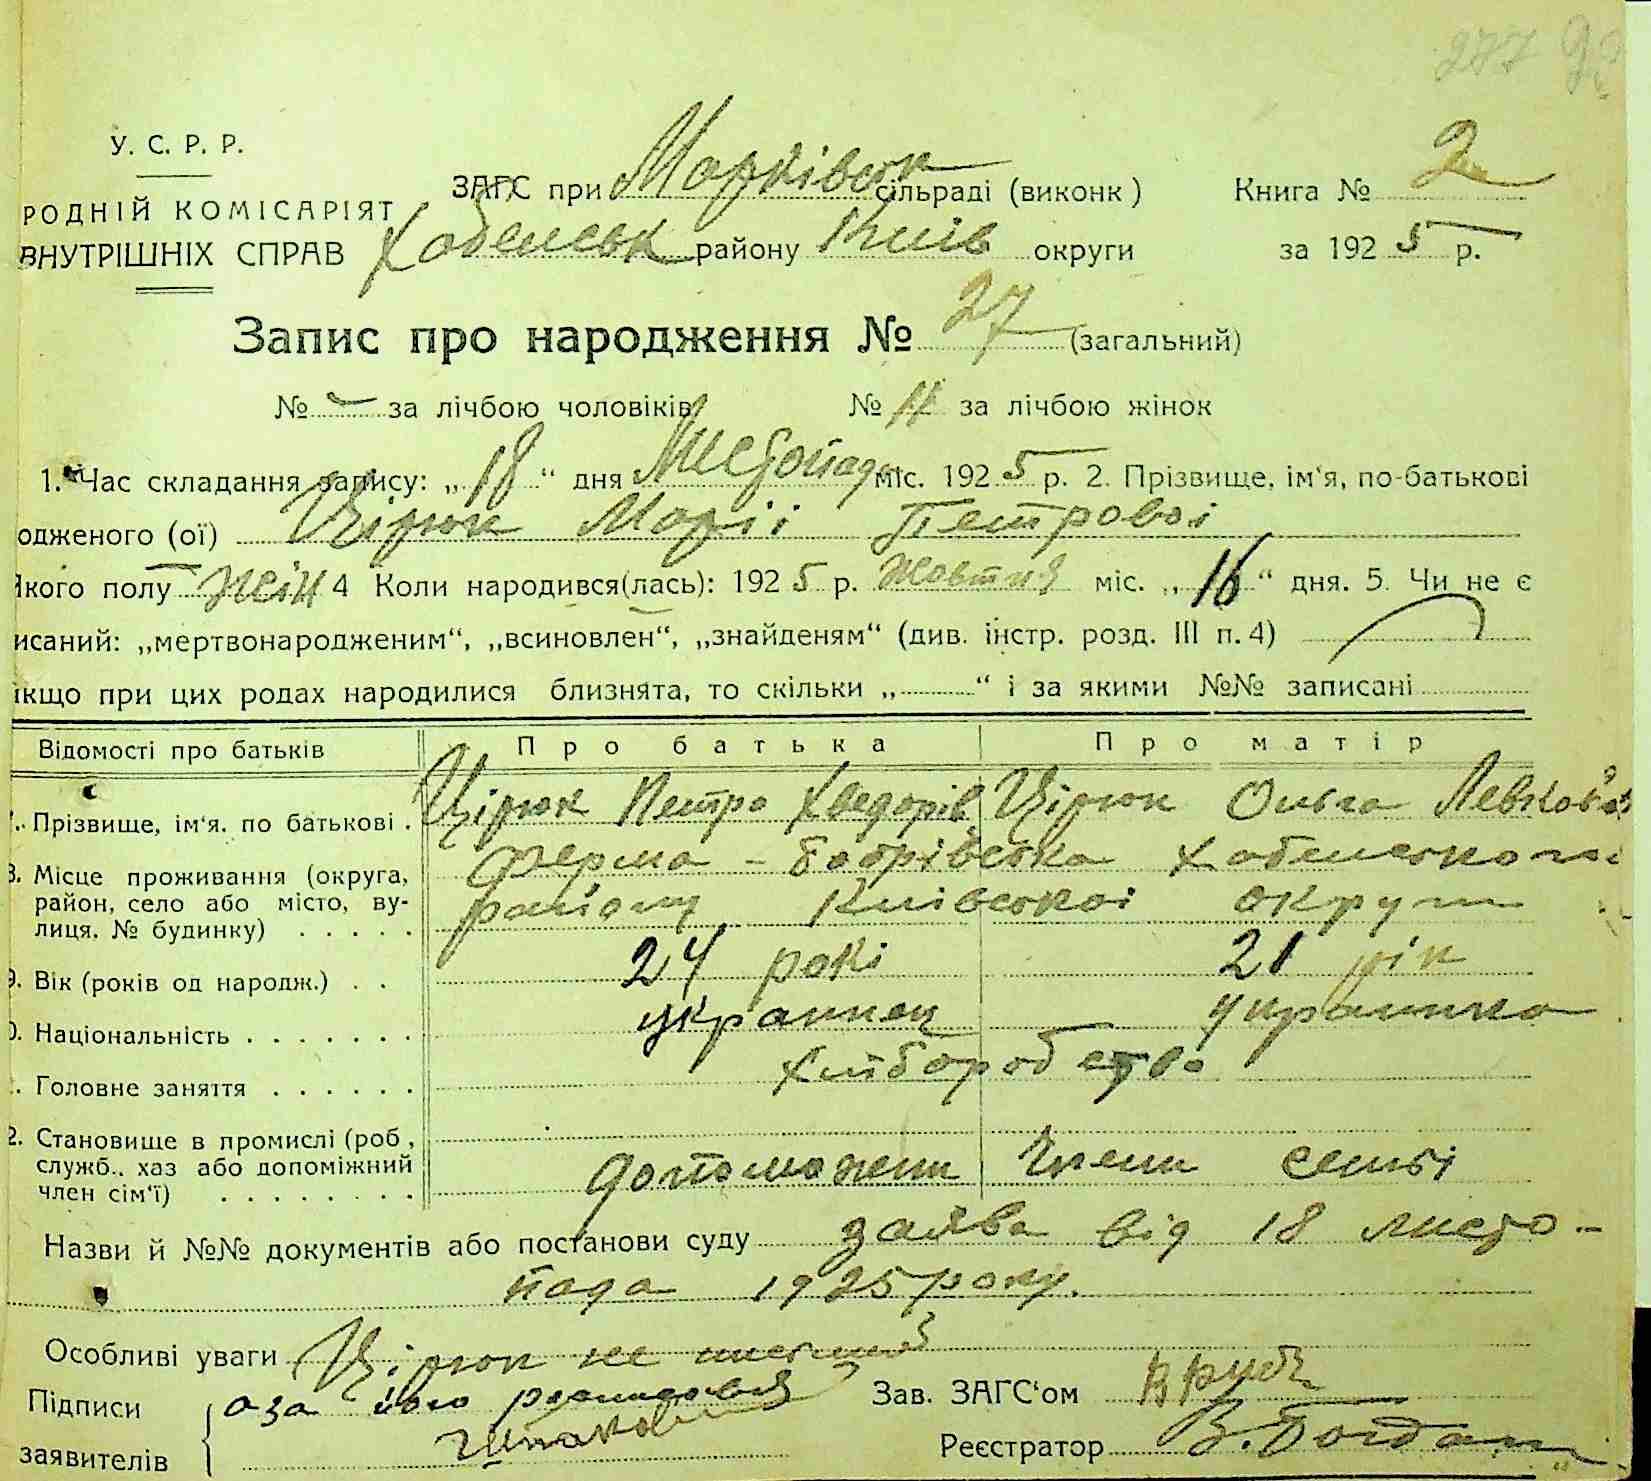 277
У. С. Р. Р.
ЗАГС при Марківськ сільраді (виконк) Книга № 2
РОДНІЙ КОМІСАРІЯТ
ВНУТРІШНІХ СПРАВ Хабенськ району Київ округи за 1925 р.
Запис про народження № 27 (загальний)
№ - за лічбою чоловіків № 11 за лічбою жінок
1. Час складання запису: „18“ дня Листопад міс. 1925 р. 2. Прізвище, ім‘я, по-батькові
одженого (ої) Цірюк Марії Петрової
якого полу жін 4 Коли народився(лась): 1925 р. жовтня міс. „16“ дня. 5. Чи не є
исаний: „мертвонародженим“, „всиновлен“, „знайденям“ (див. інстр. розд. III п. 4)
якщо при цих родах народилися близнята, то скільки „ “ і за якими №№ записані
Відомості про батьків Про батька Про матір
7. Прізвище, ім‘я. по батькові . Цірюк Петро Хведорів Цірюк Ольга Левкова
8. Місце проживання (округа, ферма - Бобрівська Хабенського
район, село або місто, ву- району Київської округи
лиця, № будинку) . . . . .
9. Вік (років од народж.) . . 24 рокі 21 рік
0. Національність . . . . . . . украинец украинка
. Головне заняття . . . . . . хліборобство
2. Становище в промислі (роб,
служб., хаз або допоміжний допоможени члени семьі
член сім‘ї) . . . . . . . .
Назви й №№ документів або постанови суду заява від 18 листо-
пада 1925 року.
Особливі уваги Цірюк не письмений
Підписи а за його росписався Зав. ЗАГС‘ом
заявителів Реєстратор В. Богдан